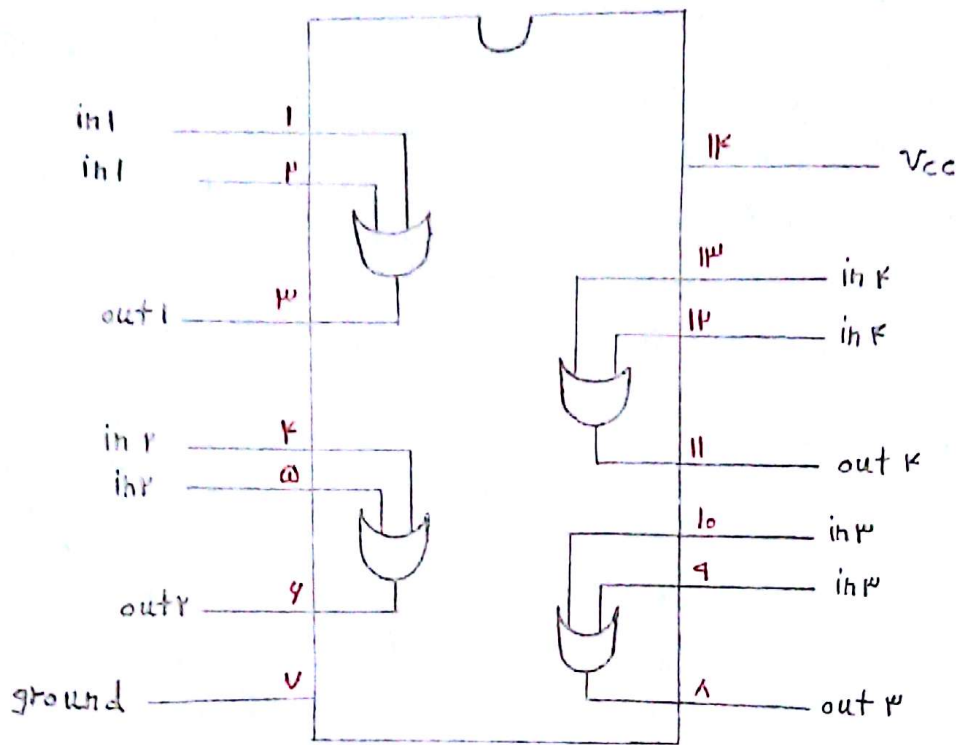 in۱ ۱
in۱ ۲
out۱ ۳
in۲ ۴
in۲ ۵
out۲ ۶
ground ۷
۱۴ Vcc
۱۳ in۴
۱۲ in۴
۱۱ out۴
۱۰ in۳
۹ in۳
۸ out۳